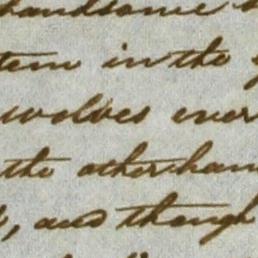 handsome
tem in the
wolves ever
the other han
, and though